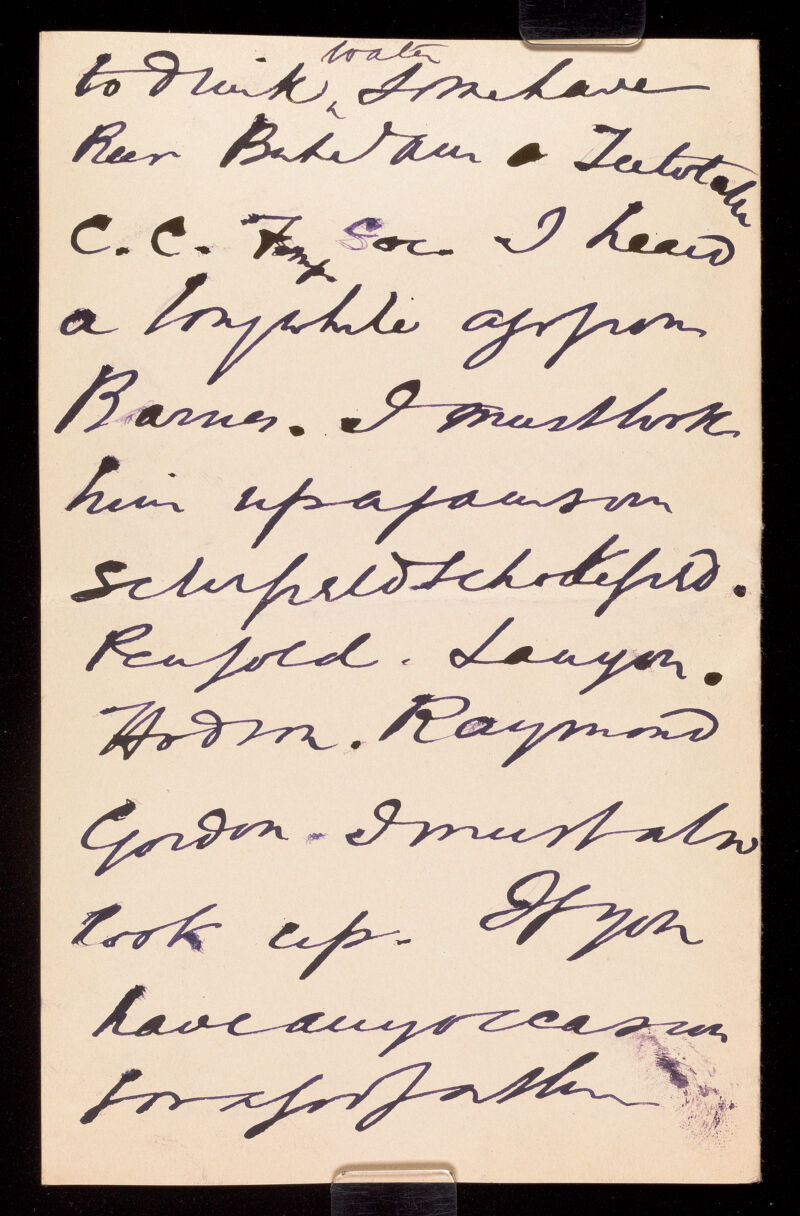 to drink ^water some have
Teetotaler
C.C. Temp Soc. I heard
a long while ago from
Barnes. I must look
him up again so on
Schofield.
Penfold. Lanyon.
Hodson. Raymond
Gordon. I must also
look up. If you
have any occasion
for a godfather